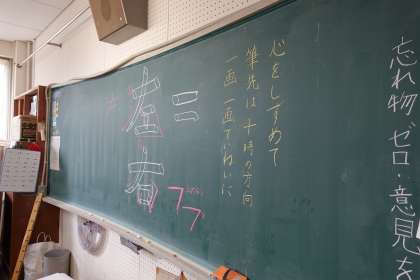 忘れ物ゼロ・意見を
心をしずめて
筆先は十時の方向
一画一画ていねいに
二
左
右
フフ